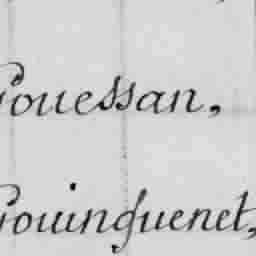 Gouessan,
Gouinguenet,